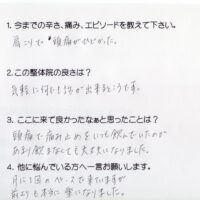 1. 今までの辛さ、痛み、エピソードを教えて下さい。
肩こりで 頭痛がひどかった。
2. この整体院の良さは?
気軽に何でも話が出来るところです。
3. ここに来て良かったなぁと思ったことは?
頭痛で痛み止めをいつも飲んでいたのが
あまり飲まなくても大丈夫になりました。
4. 他に悩んでいる方へ一言お願いします。
月に1回のペースで来ていますが
前よりも本当に楽になりました。